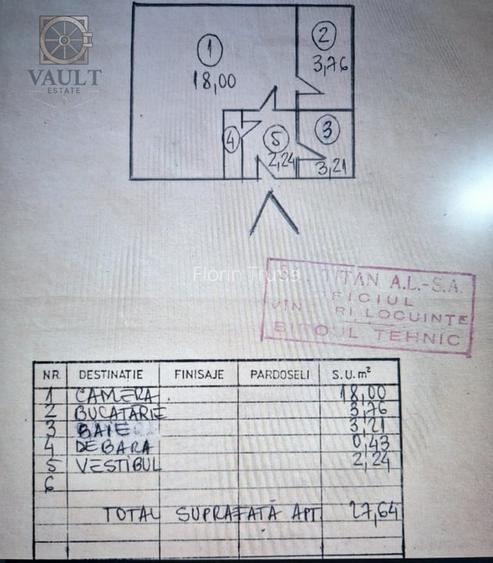 VAULT
ESTATE
1
18,00
2
3,76
3
3,21
4
5
2,24
TITAN A.L.-S.A.
LOCUINTE
BIROUL TEHNIC
NR. DESTINATIE FINISAJE PARDOSELI S.U. m²
1 CAMERA 18,00
2 BUCATARIE 3,76
3 BAIE 3,21
4 DEBARA 0,43
5 VESTIBUL 2,24
6
TOTAL SUPRAFATĂ APT. 27,64